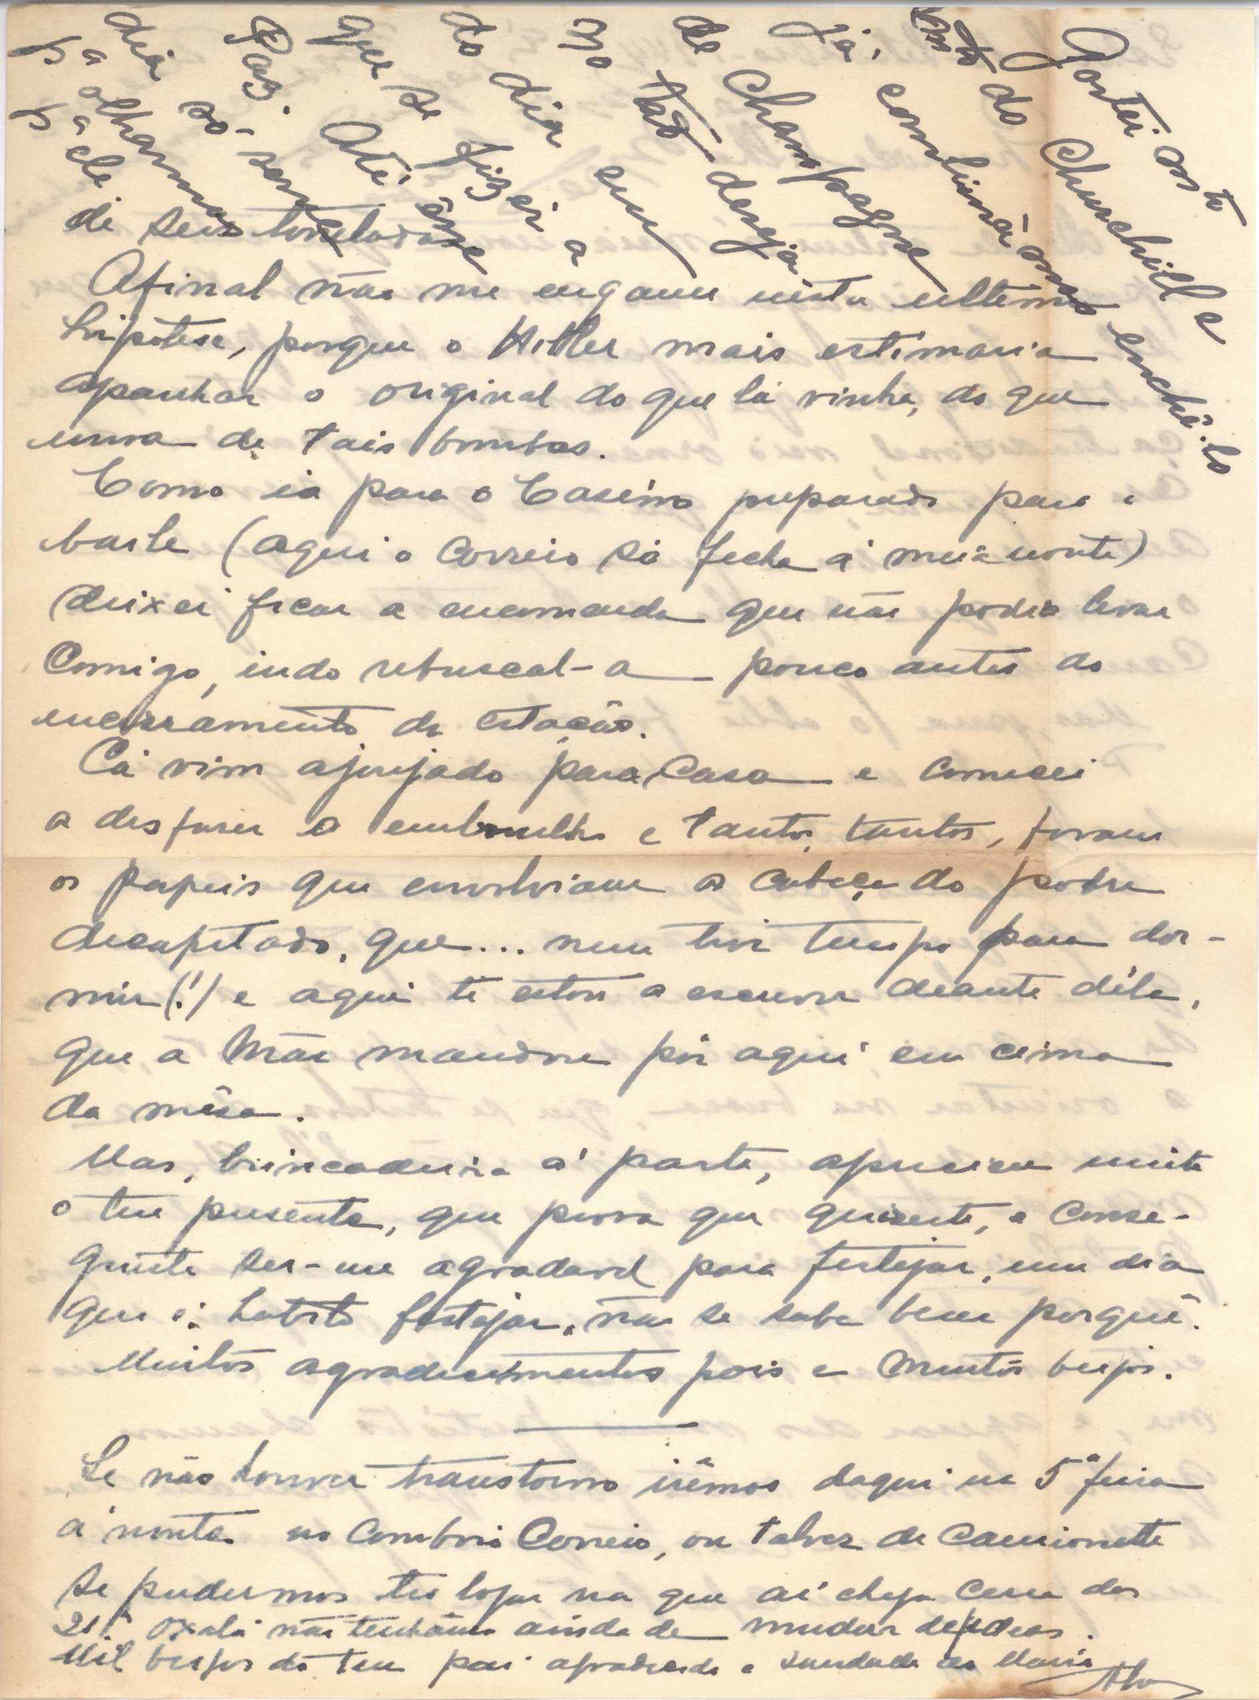 de seis toneladas.
Afinal não me enganei nesta ultima
hipótese, porque o Hitler mais estimaria
apanhar o original do que lá vinha, do que
uma de tais bombas.
Como ia para o Casino preparado para o
baile (aqui o correio só fecha á meia noute)
deixei ficar a encomenda que não podia levar
comigo, indo rebuscal-a pouco antes do
encerramento da estação.
Cá vim ajoujado para casa e comecei
a desfazer o embrulho e tantos, tantos, foram
os papeis que envolviam a cabeça do pobre
decapitado, que... nem tive tempo para dor-
mir (!) e aqui te estou a escrever deante déle,
que a Mãe mandou pôr aqui em cima
da mêsa.
Mas, brincadeira á parte, apreciei muito
o teu presente, que prova que quizeste, e conse-
guiste ser-me agradavel para festejar, um dia
que é habito festejar, não se sabe bem porquê.
Muitos agradecimentos pois e muitos beijos.
Se não houver transtorno irêmos daqui na 5ª feira
á noute no comboio Correio, ou talvez de camionete
se pudermos ter logar na que aí chega cerca das
21h. Oxalá não tenhâmos ainda de mudar de ideas.
Mil beijos do teu pai agradecido e saudades da Maria
Gostei muito do Churchill e
já combinámos enchê-lo
de champagne
no tão desejado dia em
que se fizer a
Paz. Até êsse
dia só serve
p.a olharmos
p.a ele